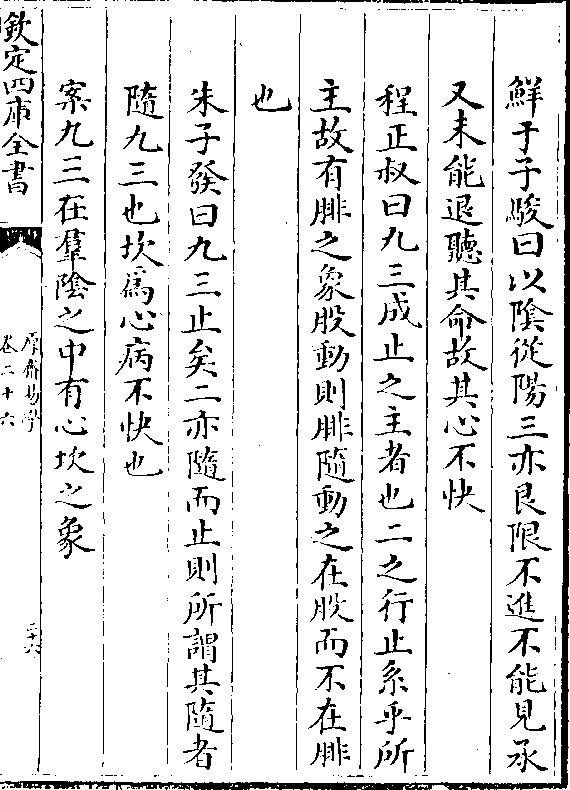 鮮于子駿曰以陰從陽三亦艮限不進不能見承
又未能退聽其命故其心不快
程正叔曰九三成止之主者也二之行止系乎所
主故有腓之象股動則腓隨動之在股而不在腓
也
朱子發曰九三止矣二亦隨而止則所謂其隨者
隨九三也坎爲心病不快也
案九三在羣陰之中有心坎之象
欽定四庫全書
厚齋易學
卷二十六